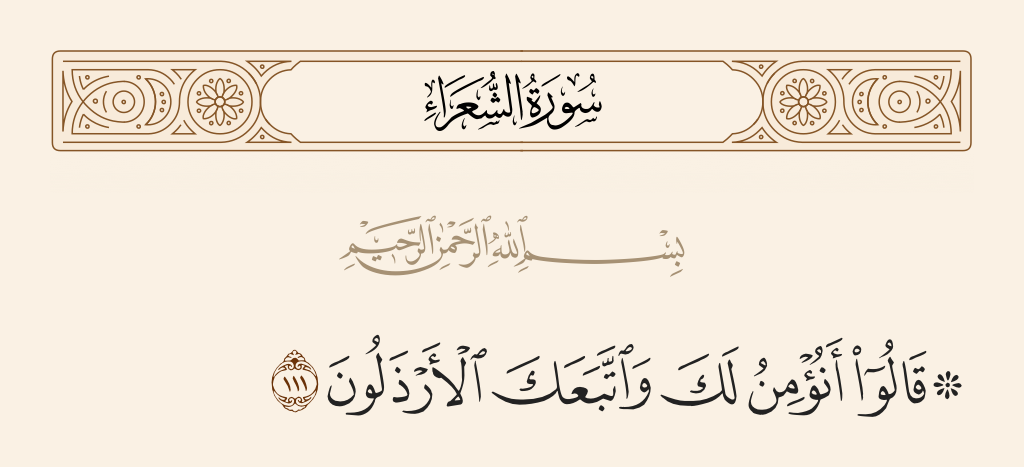 سُورَةُ الشُّعَرَاءِ
بِسْمِ ٱللَّهِ ٱلرَّحْمَٰنِ ٱلرَّحِيمِ
۞ قَالُوٓا۟ أَنُؤْمِنُ لَكَ وَٱتَّبَعَكَ ٱلْأَرْذَلُونَ ١١١